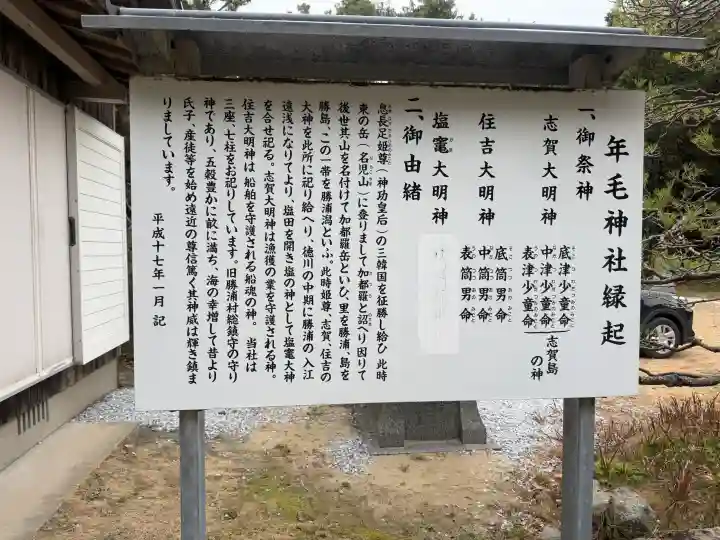 年毛神社縁起
一、御祭神
志賀大明神
底津少童命
中津少童命
表津少童命
志賀島
の神
住吉大明神
底筒男命
中筒男命
表筒男命
塩竈大明神
二、御由緒
息長足姫尊(神功皇后)の三韓国を征勝し給ひ此時
東の岳(名児山)に登りまして加都羅と詔へり因りて
後世其山を名付けて加都羅岳といひ、里を勝浦、島を
勝島、この一帯を勝浦潟といふ。此時姫尊、志賀、住吉の
大神を此所に祀り給へり、徳川の中期に勝浦の入江
遠浅になりてより、塩田を開き塩の神として塩竈大神
を合せ祀る。志賀大明神は漁獲の業を守護される神。
住吉大明神は船舶を守護される船魂の神。当社は
三座、七柱をお祀りしています。旧勝浦村総鎮守の守り
神であり、五穀豊かに畝に満ち、海の幸増して昔より
氏子、産徒等を始め遠近の尊信篤く其神威は輝き鎮ま
りましています。
平成十七年一月記